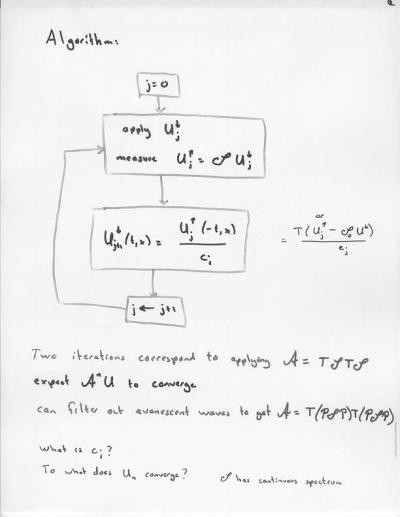 Algorithm:
j=0
apply U_j^↓
measure U_j^↑ = 𝒮 U_j^↓
U_{j+1}^↓(t,x) = U_j^↑(-t,x) / c_j
or
= T(U_j^↑ - 𝒮_0 U^↓) / c_j
j ← j+1
Two iterations correspond to applying A = T𝒮T𝒮
expect AⁿU to converge
can filter out evanescent waves to get A = T(P𝒮P)T(P𝒮P)
What is c_j?
To what does U_n converge? 𝒮 has continuous spectrum